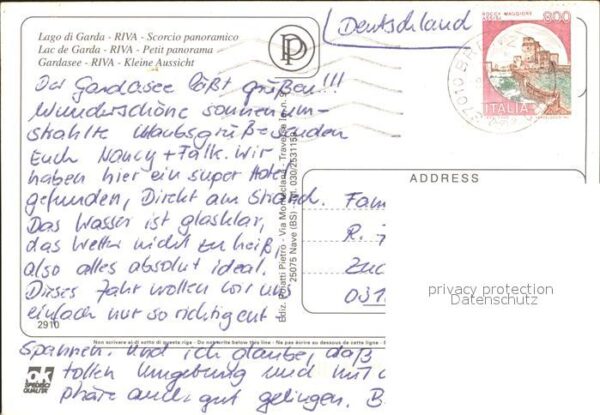 Lago di Garda - RIVA - Scorcio panoramico
Lac de Garda - RIVA - Petit panorama
Gardasee - RIVA - Kleine Aussicht
Deutschland
ROCCA MAGGIORE
800
ITALIA
Der Gardasee läßt grüßen!!!
Wunderschöne sonnenum-
strahlte Urlaubsgrüße senden
Euch Nancy + Falk. Wir
haben hier ein super Hotel
gefunden, Direkt am Strand.
Das Wasser ist glasklar,
das Wetter nicht zu heiß,
also alles absolut ideal.
Dieses Jahr wollen wir uns
einfach nur so richtig ent-
spannen. Und ich glaube, daß
tollen Umgebung und mit d
phäre auch gut gelingen. B
2910
Non scrivere al di sotto di questa riga - Do not write below this line - Ne pas écrire au dessous de cette ligne -
Ediz. Poiatti Pietro - Via Monteclana - Traversa
25075 Nave (BS) - Tel. 030/2531151
ADDRESS
Fam
R.
031
privacy protection
Datenschutz
ok
SPECIRO
QUALITÄT